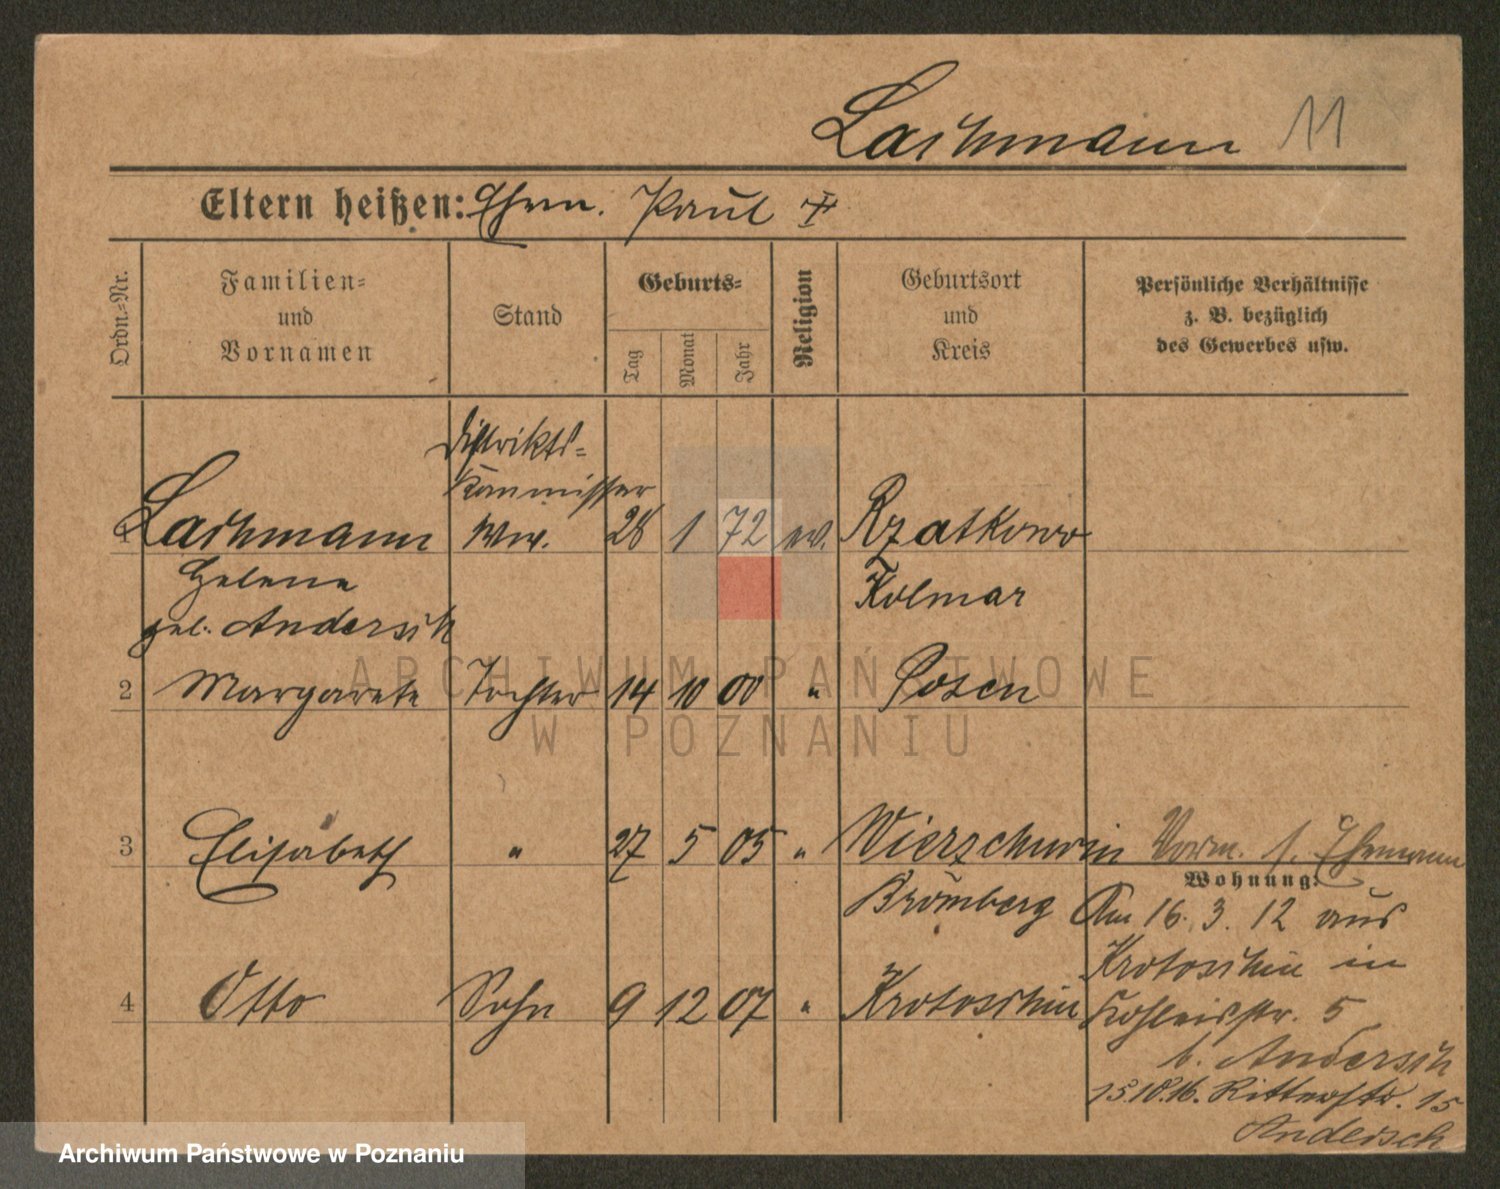 Lachmann 11
Eltern heißen: Ehem. Paul
Ordn.-Nr.
Familien-
und
Vornamen
Stand
Geburts-
Tag
Monat
Jahr
Religion
Geburtsort
und
Kreis
Persönliche Verhältnisse
z. B. bezüglich
des Gewerbes usw.
Distrikts-
Kommissar
Lachmann Ww. 28 1 72 ev. Rzatkowo
Helene Kolmar
geb. Andersch
2 Margarete Tochter 14 10 00 " Posen
3 Elisabeth " 27 5 05 " Wierschucin Vorm. s. Ehemann
Wohnung:
Bromberg Am 16. 3. 12 aus
Krotoschin in
4 Otto Sohn 9 12 07 " Krotoschin Kohleisstr. 5
b. Andersch
15.10.16. Ritterstr. 15
Andersch
ARCHIWUM PAŃSTWOWE
W POZNANIU
Archiwum Państwowe w Poznaniu